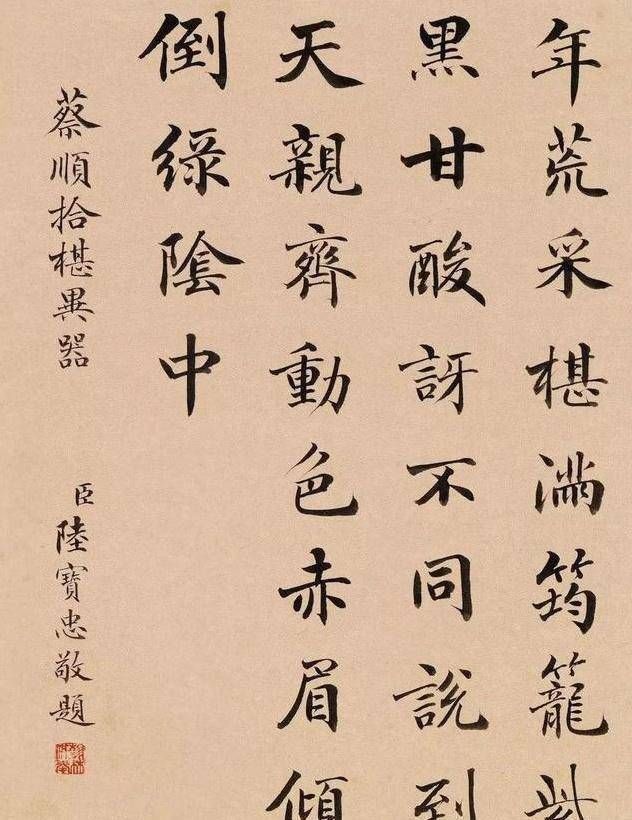 年荒采椹滿筠籠紫
黑甘酸訝不同說到
天親齊動色赤眉傾
倒綠陰中
蔡順拾椹異器
臣陸寶忠敬題